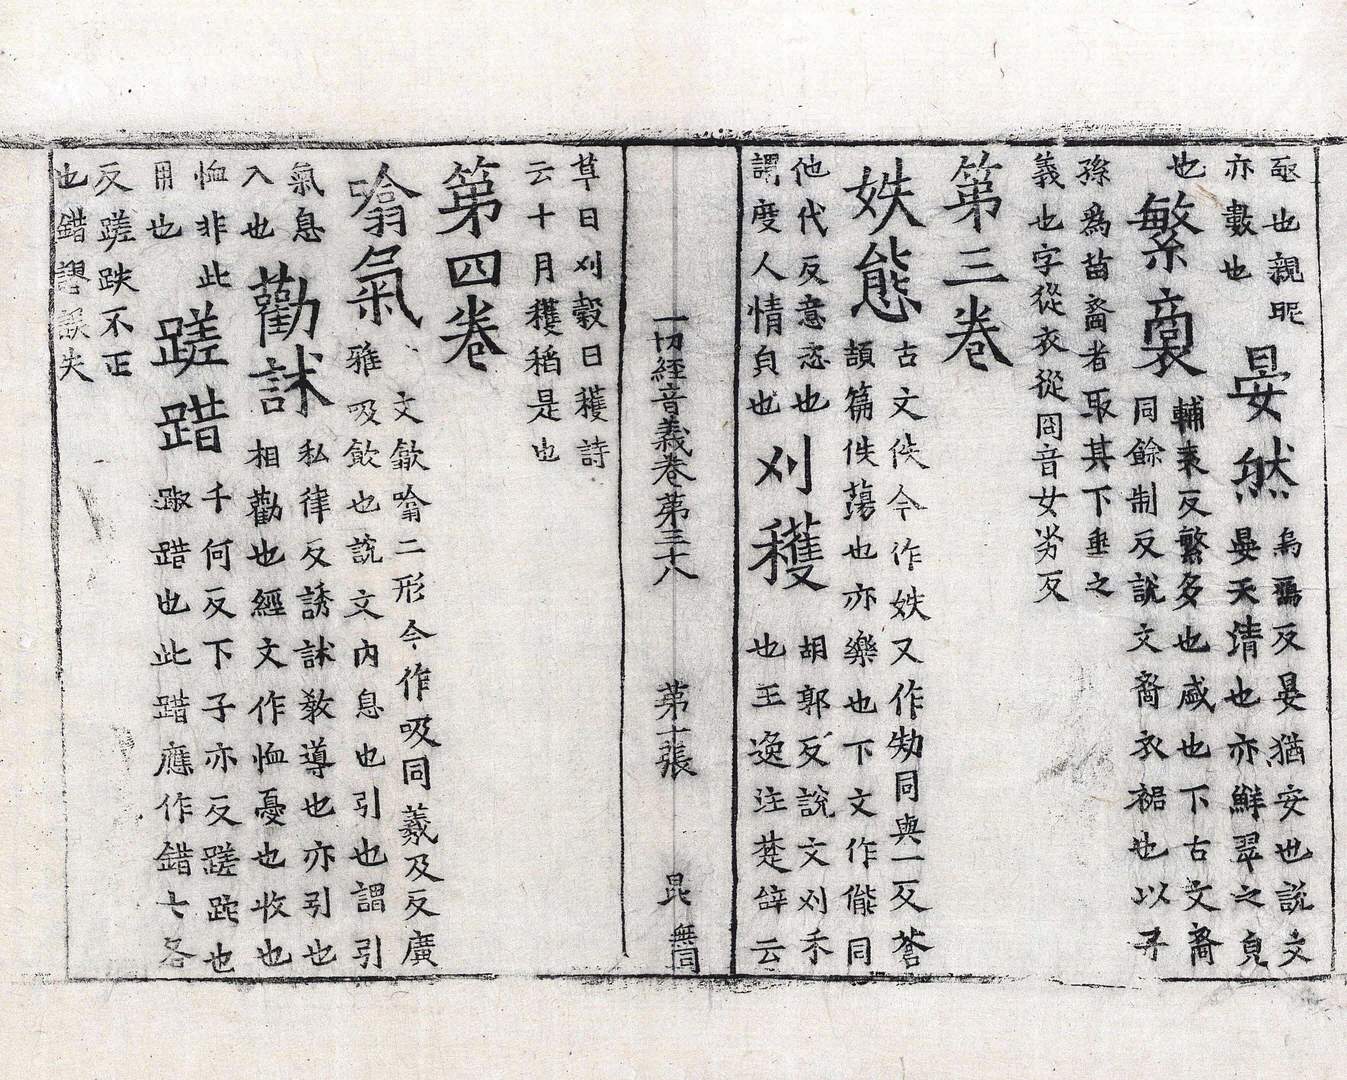 亟也親昵
亦數也
晏然
烏鴈反晏猶安也說文
晏天淸也亦鮮翠之皃
也
繁裔
輔袁反繁多也咸也下古文裔
同餘制反說文裔衣裾也以子
孫爲苗裔者取其下垂之
義也字從衣從㕯音女劣反
第三卷
妷態
古文佚今作妷又作劮同與一反蒼
頡篇佚蕩也亦樂也下文作儱同
他代反意恣也
謂度人情皃也
刈穫
胡郭反說文刈禾
也王逸注楚辞云
草曰刈穀曰穫詩
云十月穫稻是也
一切経音義卷第三十八
第十張
昆
無同
第四卷
噏氣
文歙噏二形今作吸同羲及反廣
雅吸飮也說文內息也引也謂引
氣息
入也
勸訹
私律反誘訹敎導也亦引也
相勸也經文作恤憂也收也
恤非此
用也
蹉踖
千何反下子亦反蹉跎也
踧踖也此踖應作錯七各
反蹉跌不正
也錯謬誤失